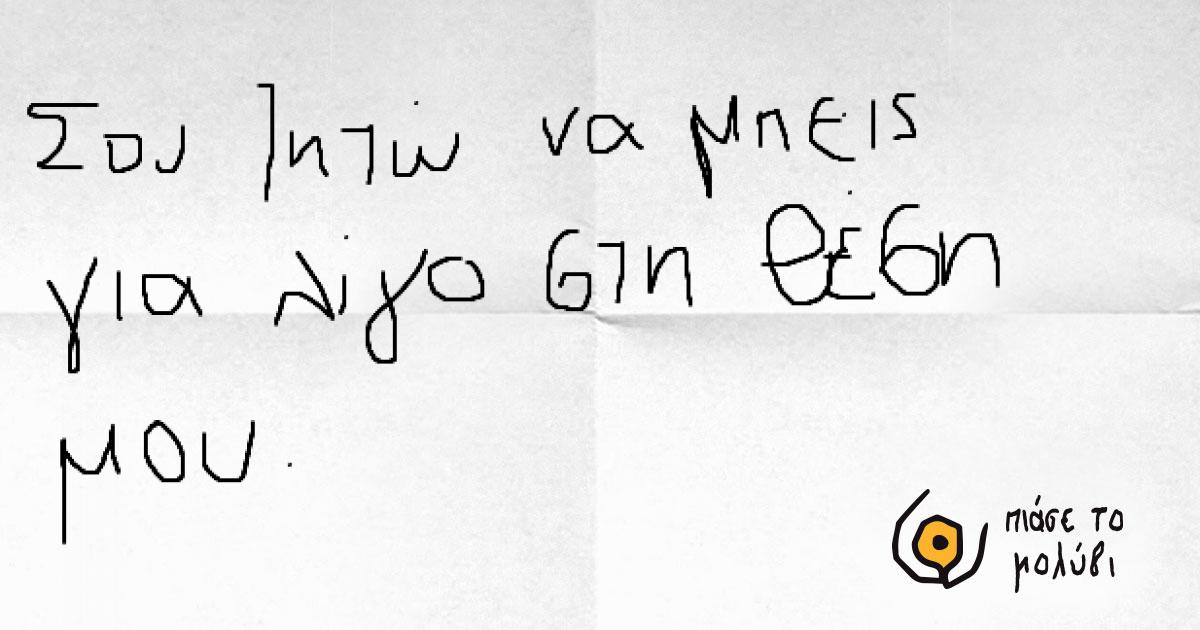 Σου ζητώ να μπεις
για λίγο στη θέση
μου.
πιάσε το
μολύβι